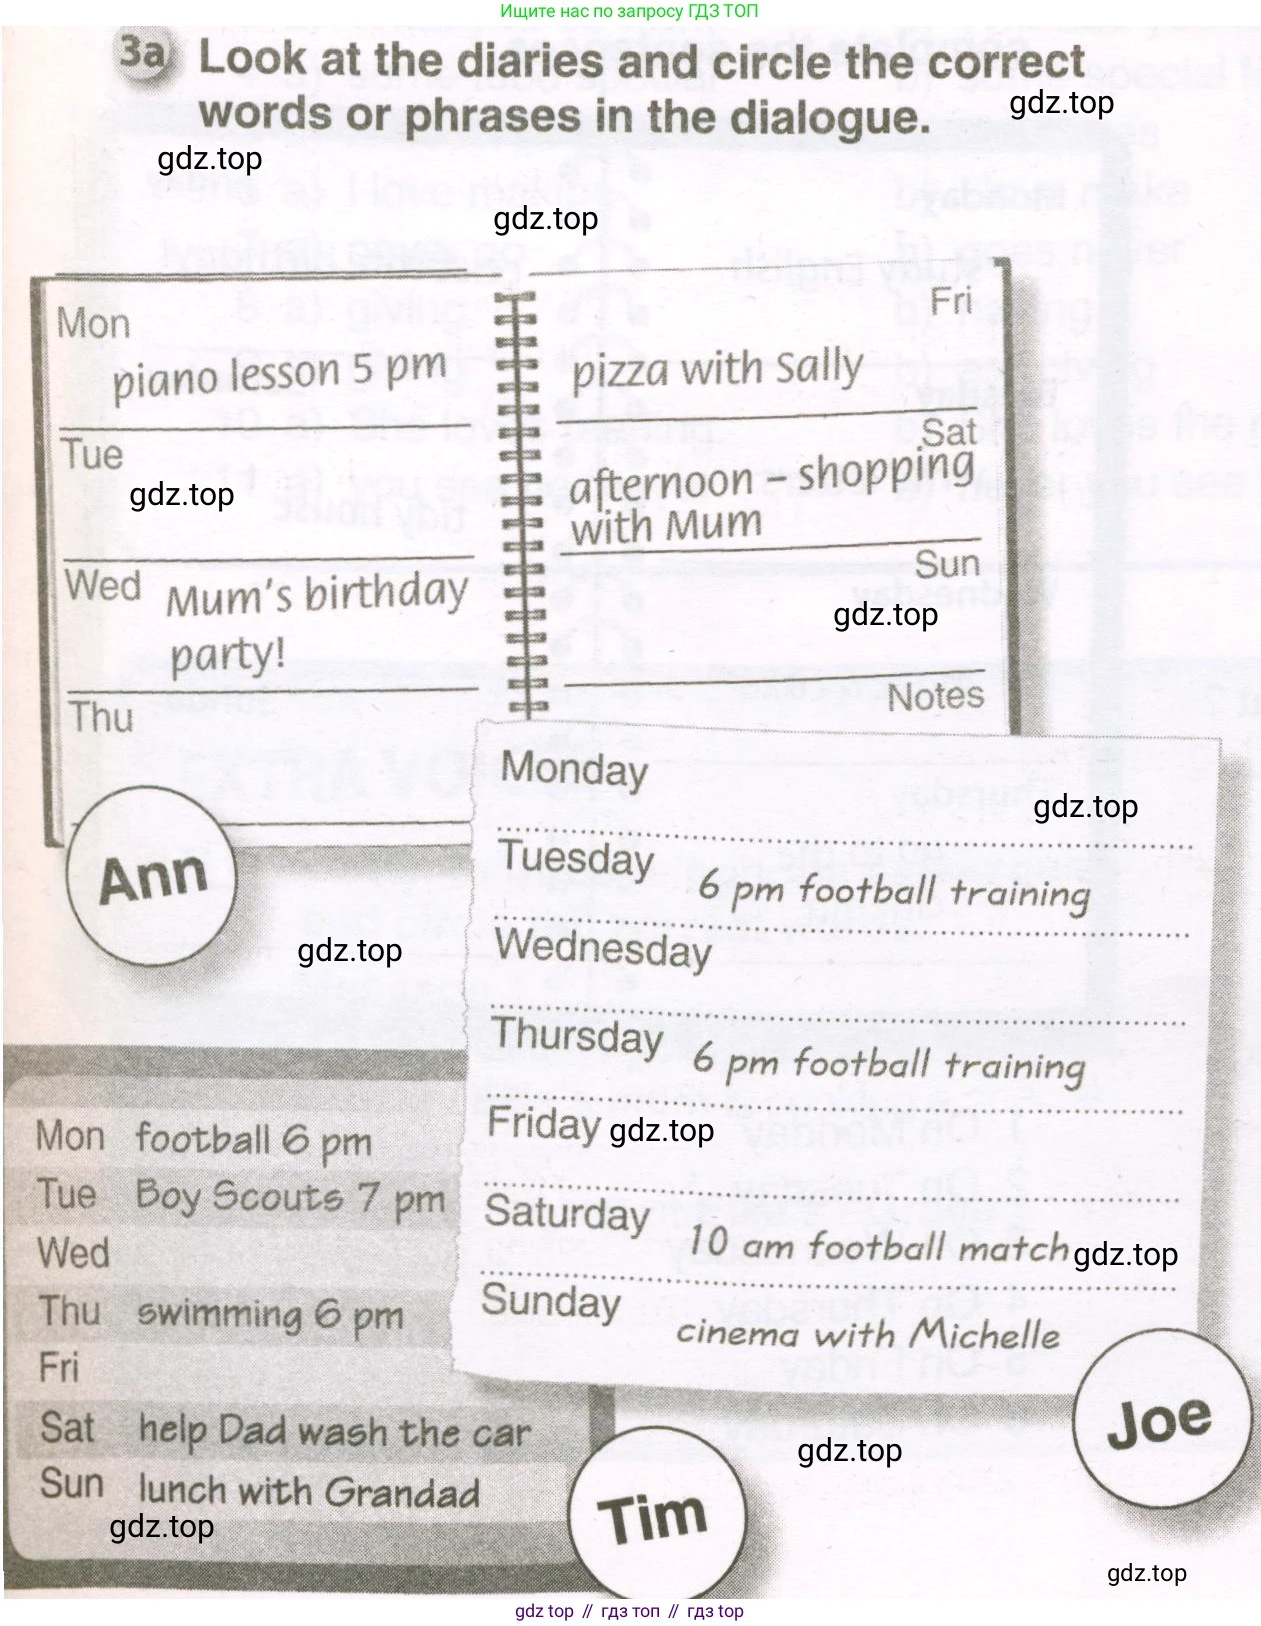 Ищите нас по запросу ГДЗ ТОП
3a Look at the diaries and circle the correct
words or phrases in the dialogue.
gdz.top
gdz.top
gdz.top
Mon
piano lesson 5 pm
Tue
gdz.top
Wed Mum's birthday
party!
Thu
Fri
pizza with Sally
Sat
afternoon – shopping
with Mum
Sun
gdz.top
Notes
Ann
gdz.top
Monday
gdz.top
Tuesday 6 pm football training
Wednesday
Thursday 6 pm football training
Friday gdz.top
Saturday 10 am football match gdz.top
Sunday cinema with Michelle
Joe
gdz.top
Mon football 6 pm
Tue Boy Scouts 7 pm
Wed
Thu swimming 6 pm
Fri
Sat help Dad wash the car
Sun lunch with Grandad
gdz.top
Tim
gdz.top
gdz top // гдз топ // gdz top